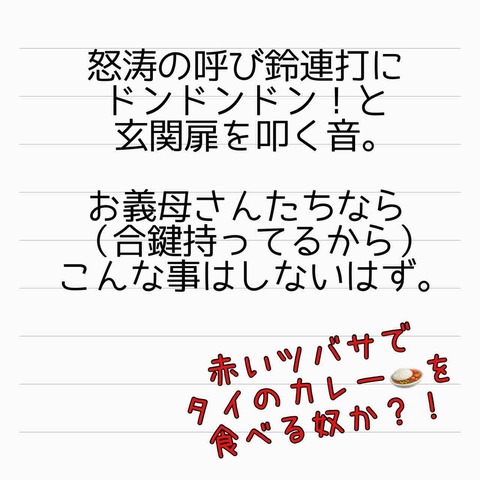 怒涛の呼び鈴連打に
ドンドンドン！と
玄関扉を叩く音。
お義母さんたちなら
（合鍵持ってるから）
こんな事はしないはず。
赤いツバサで
タイのカレー🍛を
食べる奴か？！